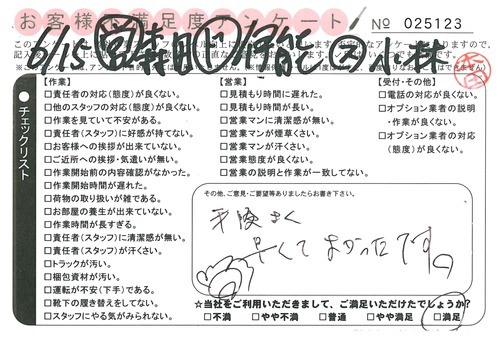 お客様不満足度アンケート
No 025123
チェックリスト
【作業】
□責任者の対応(態度)が良くない。
□他のスタッフの対応(態度)が良くない。
□作業を見ていて不安がある。
□責任者(スタッフ)に好感が持てない。
□お客様への挨拶が出来ていない。
□ご近所への挨拶・気遣いが無い。
□作業開始前の内容確認がなかった。
□作業開始時間が遅れた。
□荷物の取り扱いが雑である。
□お部屋の養生が出来ていない。
□作業時間が長すぎる。
□責任者(スタッフ)に清潔感が無い。
□責任者(スタッフ)が汗くさい。
□トラックが汚い。
□梱包資材が汚い。
□運転が不安(下手)である。
□靴下の履き替えをしてない。
□スタッフにやる気がみられない。
【営業】
□見積もりが時間に遅れた。
□見積もり時間に長い。
□営業マンに清潔感が無い。
□営業マンが煙草くさい。
□営業マンが汗くさい。
□営業態度が良くない。
□営業の説明と作業が一致してない。
【受付・その他】
□電話の対応が良くない。
□オプション業者の説明
・作業が良くない。
□オプション業者の対応
(態度)が良くない。
その他、ご意見・ご要望等ありましたらお書き下さい。
早くてよかったです。
☆当社をご利用いただきまして、ご満足いただけたでしょうか?
□不満 □やや不満 □普通 □やや満足 □満足